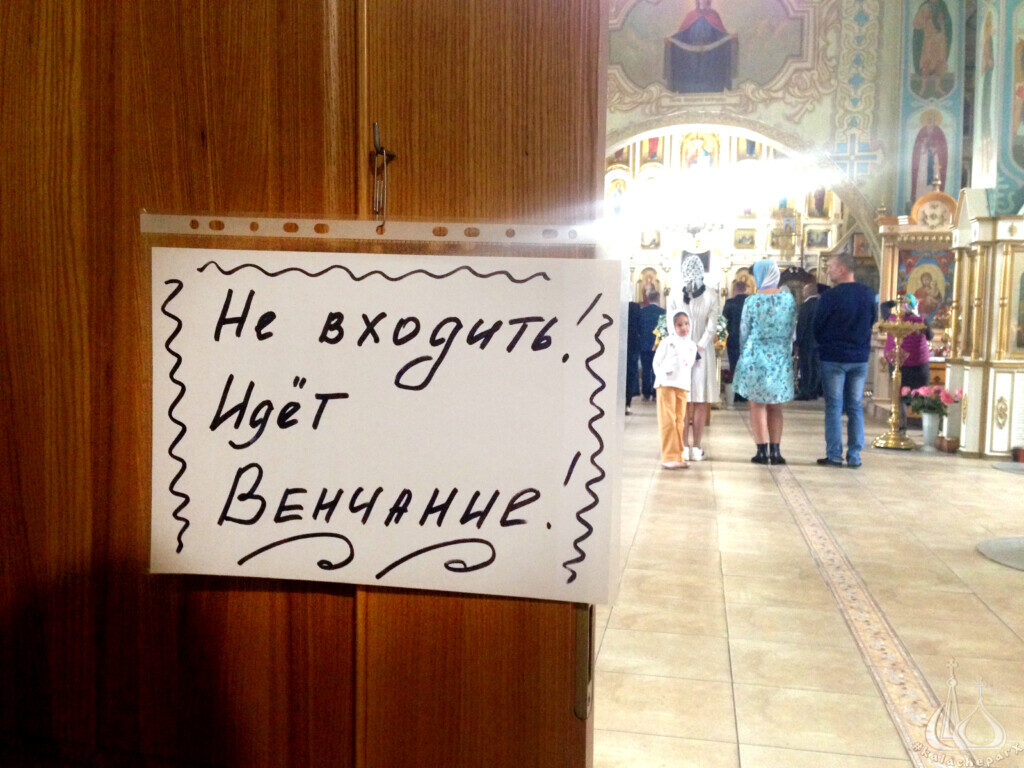 Не входить!
Идёт
Венчание!